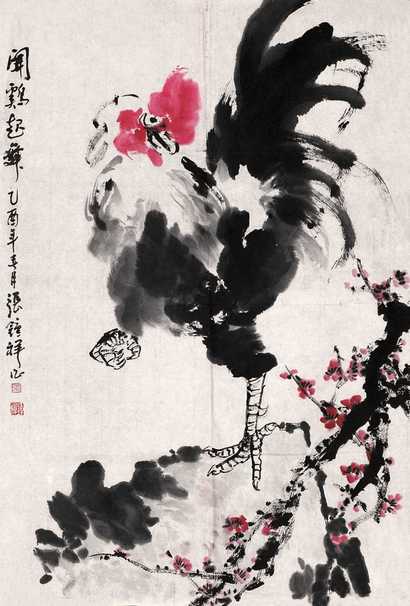 闻鸡起舞
乙酉年春月張鍾祥作